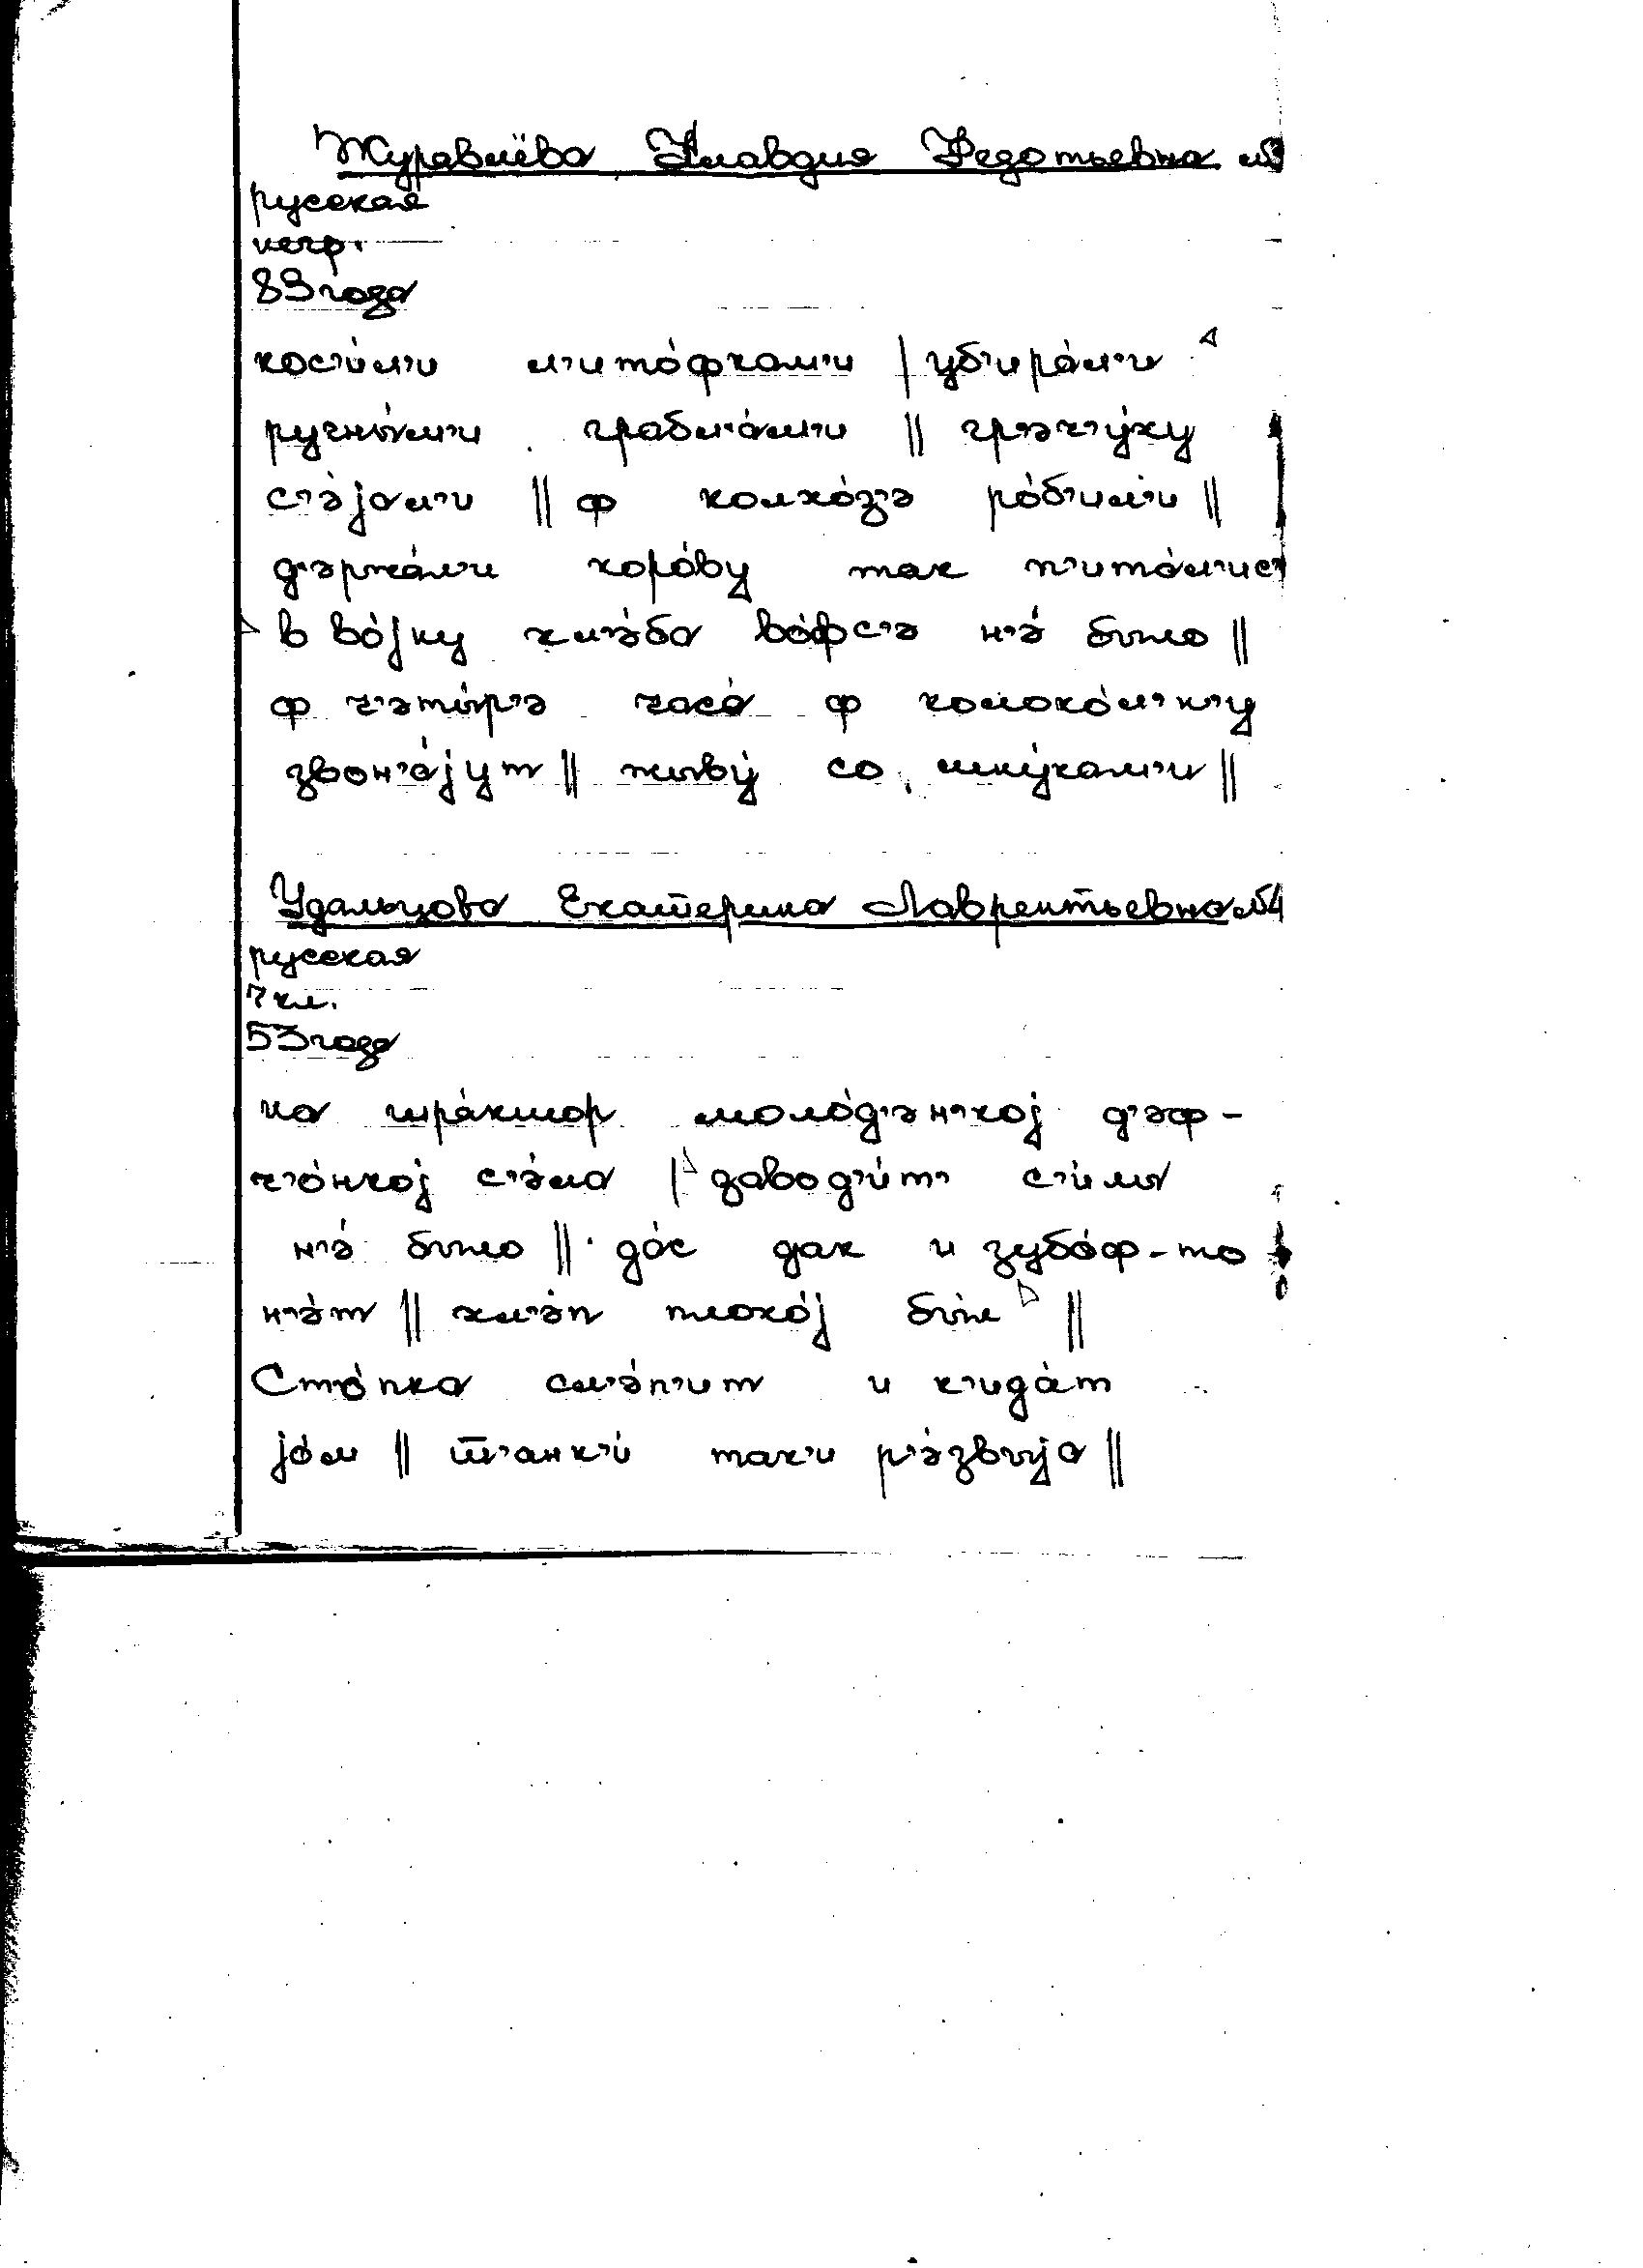 Журавлёва Клавдия Федотьевна №3
русская
негр.
83 года
кос'и́л'и л'итóфкам'и | уб'ирáл'и
ручны́м'и грабл'áм'и || гр'эч'у́ху
с'э́јал'и || ф колхóз'э рóб'ил'и ||
д'эржáл'и корóву так п'итáл'ис'
в вóјну хл'э́ба вóфс'э н'э́ было ||
ф ч'эты́р'э часá ф колокóл'н'у
звон'áјут || жыву́ со внýкам'и ||
Удальцова Екатерина Лаврентьевна №4
русская
7 кл.
53 года
на трáктор молóд'эн'кој д'эф-
ч'óнкој с'э́ла | завод'и́т' с'и́лы
н'э́ было || дóс дак и зубóф-то
н'э́т || хл'э́п плохóј был ||
Стóпка сл'э́п'ит и к'идáт
јóм || т'анк'и́ так'и р'э́звыја ||